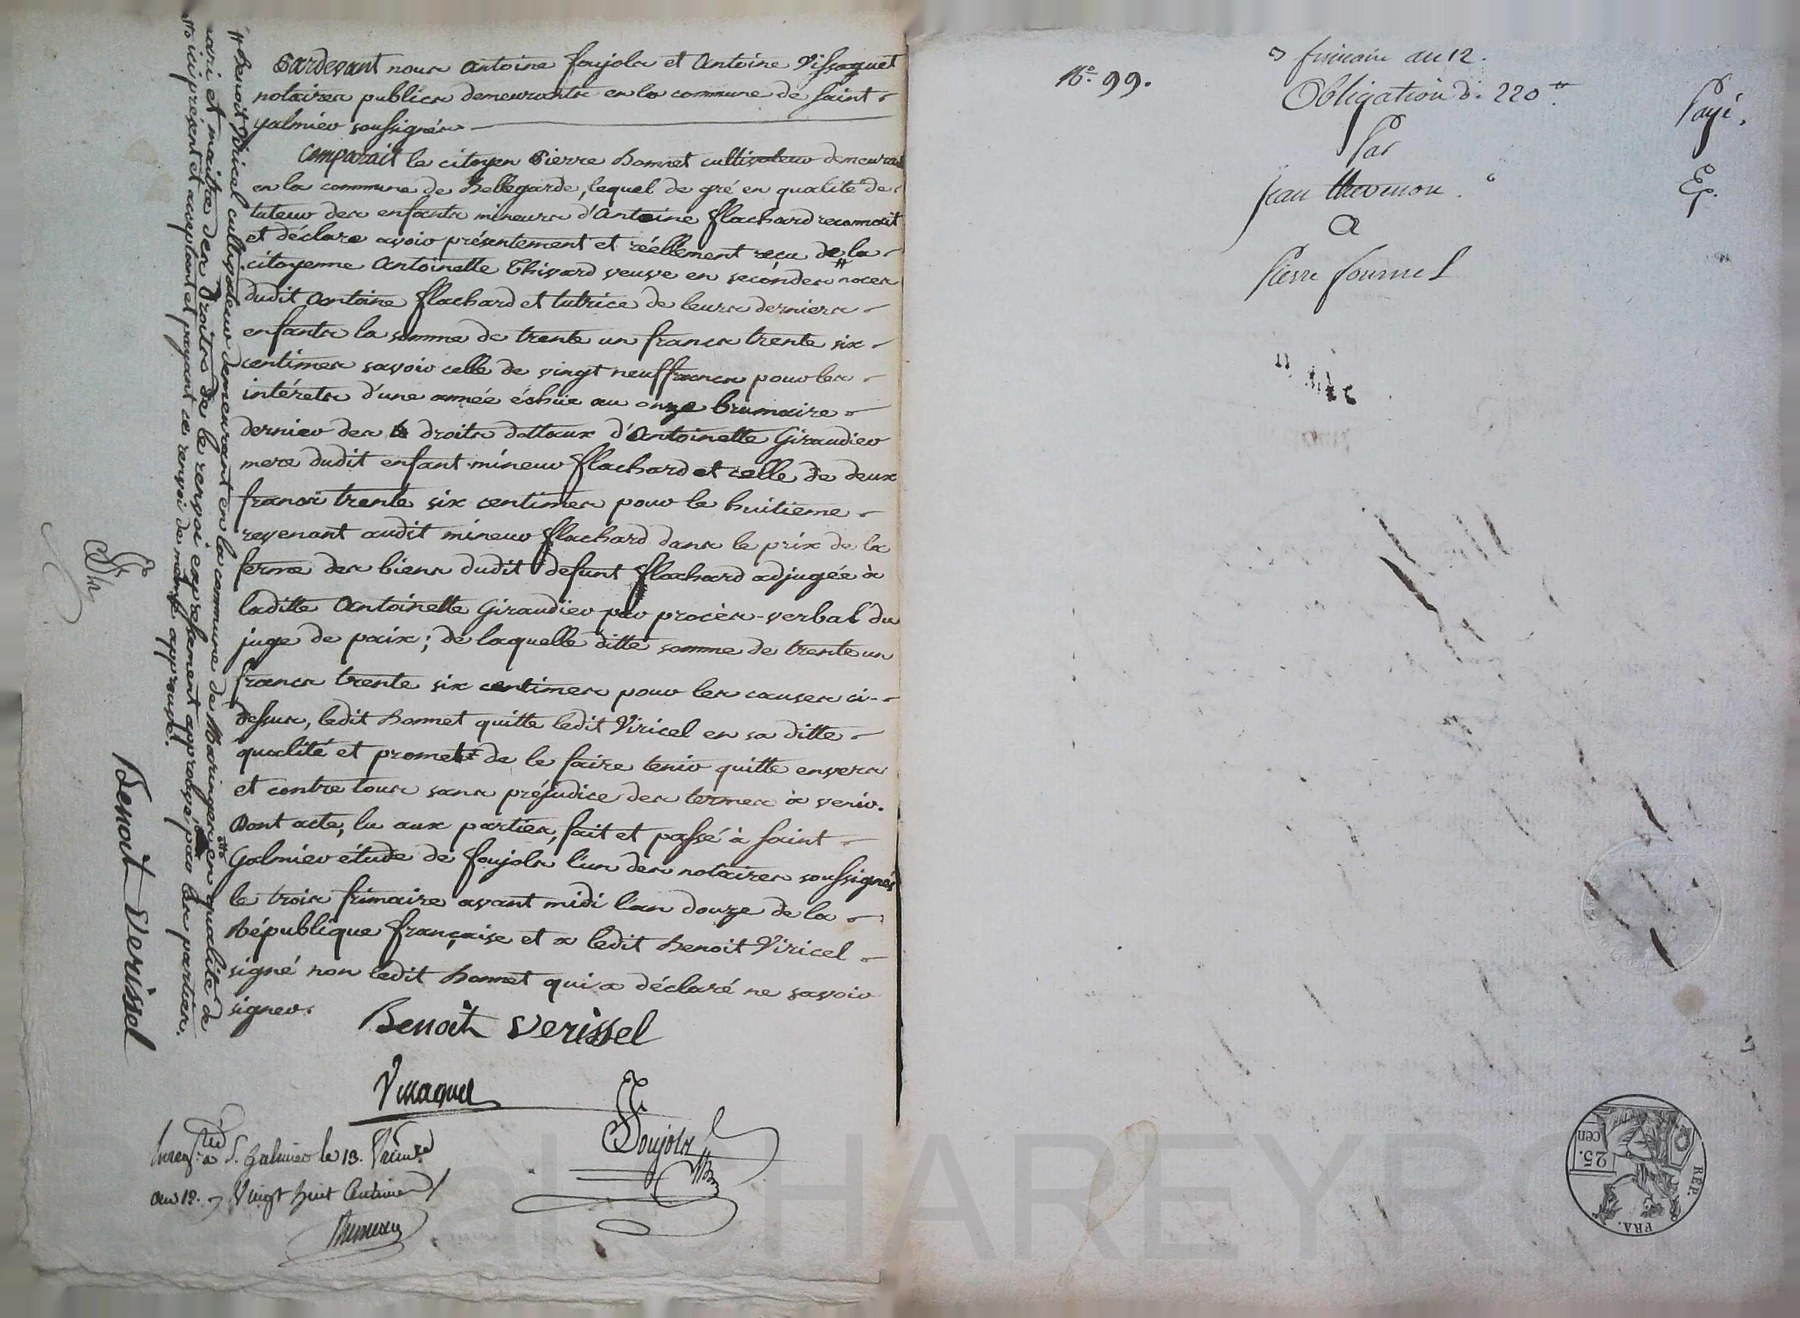 Pardevant nous Antoine foujols et Antoine Vissaguet
notaires publics demeurants en la commune de Saint-
galmier soussignés
Comparait le citoyen Pierre Bonnet cultivateur demeurant
en la commune de Bellegarde, lequel de gré en qualité de
tuteur des enfants mineurs d'Antoine flachard reconnoit
et déclare avoir présentement et réellement reçu de la #
citoyenne Antoinette Thivard veuve en secondes noces
dudit Antoine flachard et tutrice de leurs derniers
enfants la somme de trente un francs trente six
centimes savoir celle de vingt neuf francs pour les
intérêts d'une année échue au onze brumaire
dernier des droits dottaux d'Antoinette Giraudier
mere dudit enfant mineur flachard et celle de deux
francs trente six centimes pour le huitieme
revenant audit mineur flachard dans le prix de la
ferme des biens dudit defunt flachard adjugée à
laditte Antoinette Giraudier par procès-verbal du
juge de paix; de laquelle ditte somme de trente un
francs trente six centimes pour les causes ci-
dessus, ledit Bonnet quitte ledit Viricel en sa ditte
qualité et promet de le faire tenir quitte envers
et contre tous sans préjudice des termes à venir.
Dont acte, lu aux parties, fait et passé à Saint
Galmier étude de foujols l'un des notaires soussignés
le trois frimaire avant midi l'an douze de la
République française et a ledit Benoit Viricel
signé non ledit Bonnet qui a déclaré ne savoir
signer.
# Benoit Viricel cultivateur demeurant en la commune de Maringes en qualité de
mari et maitre des droits de le renvoi également approuvé par les parties.
ici présent et acceptant et payant ce renvoi de marge approuvé.
Benoit Verissel
Benoit Verissel
Vissaguet
Foujols
Enreg.té à S.t Galmier le 13. frim.re
an 12. Vingt huit Centimes
N.o 99.
3 frimaire an 12.
Obligation de 220 tt.
Par
Jean thevenon.
A
Pierre fournel
Payé.
REP. FRA.
25. cen
CHAREYRO